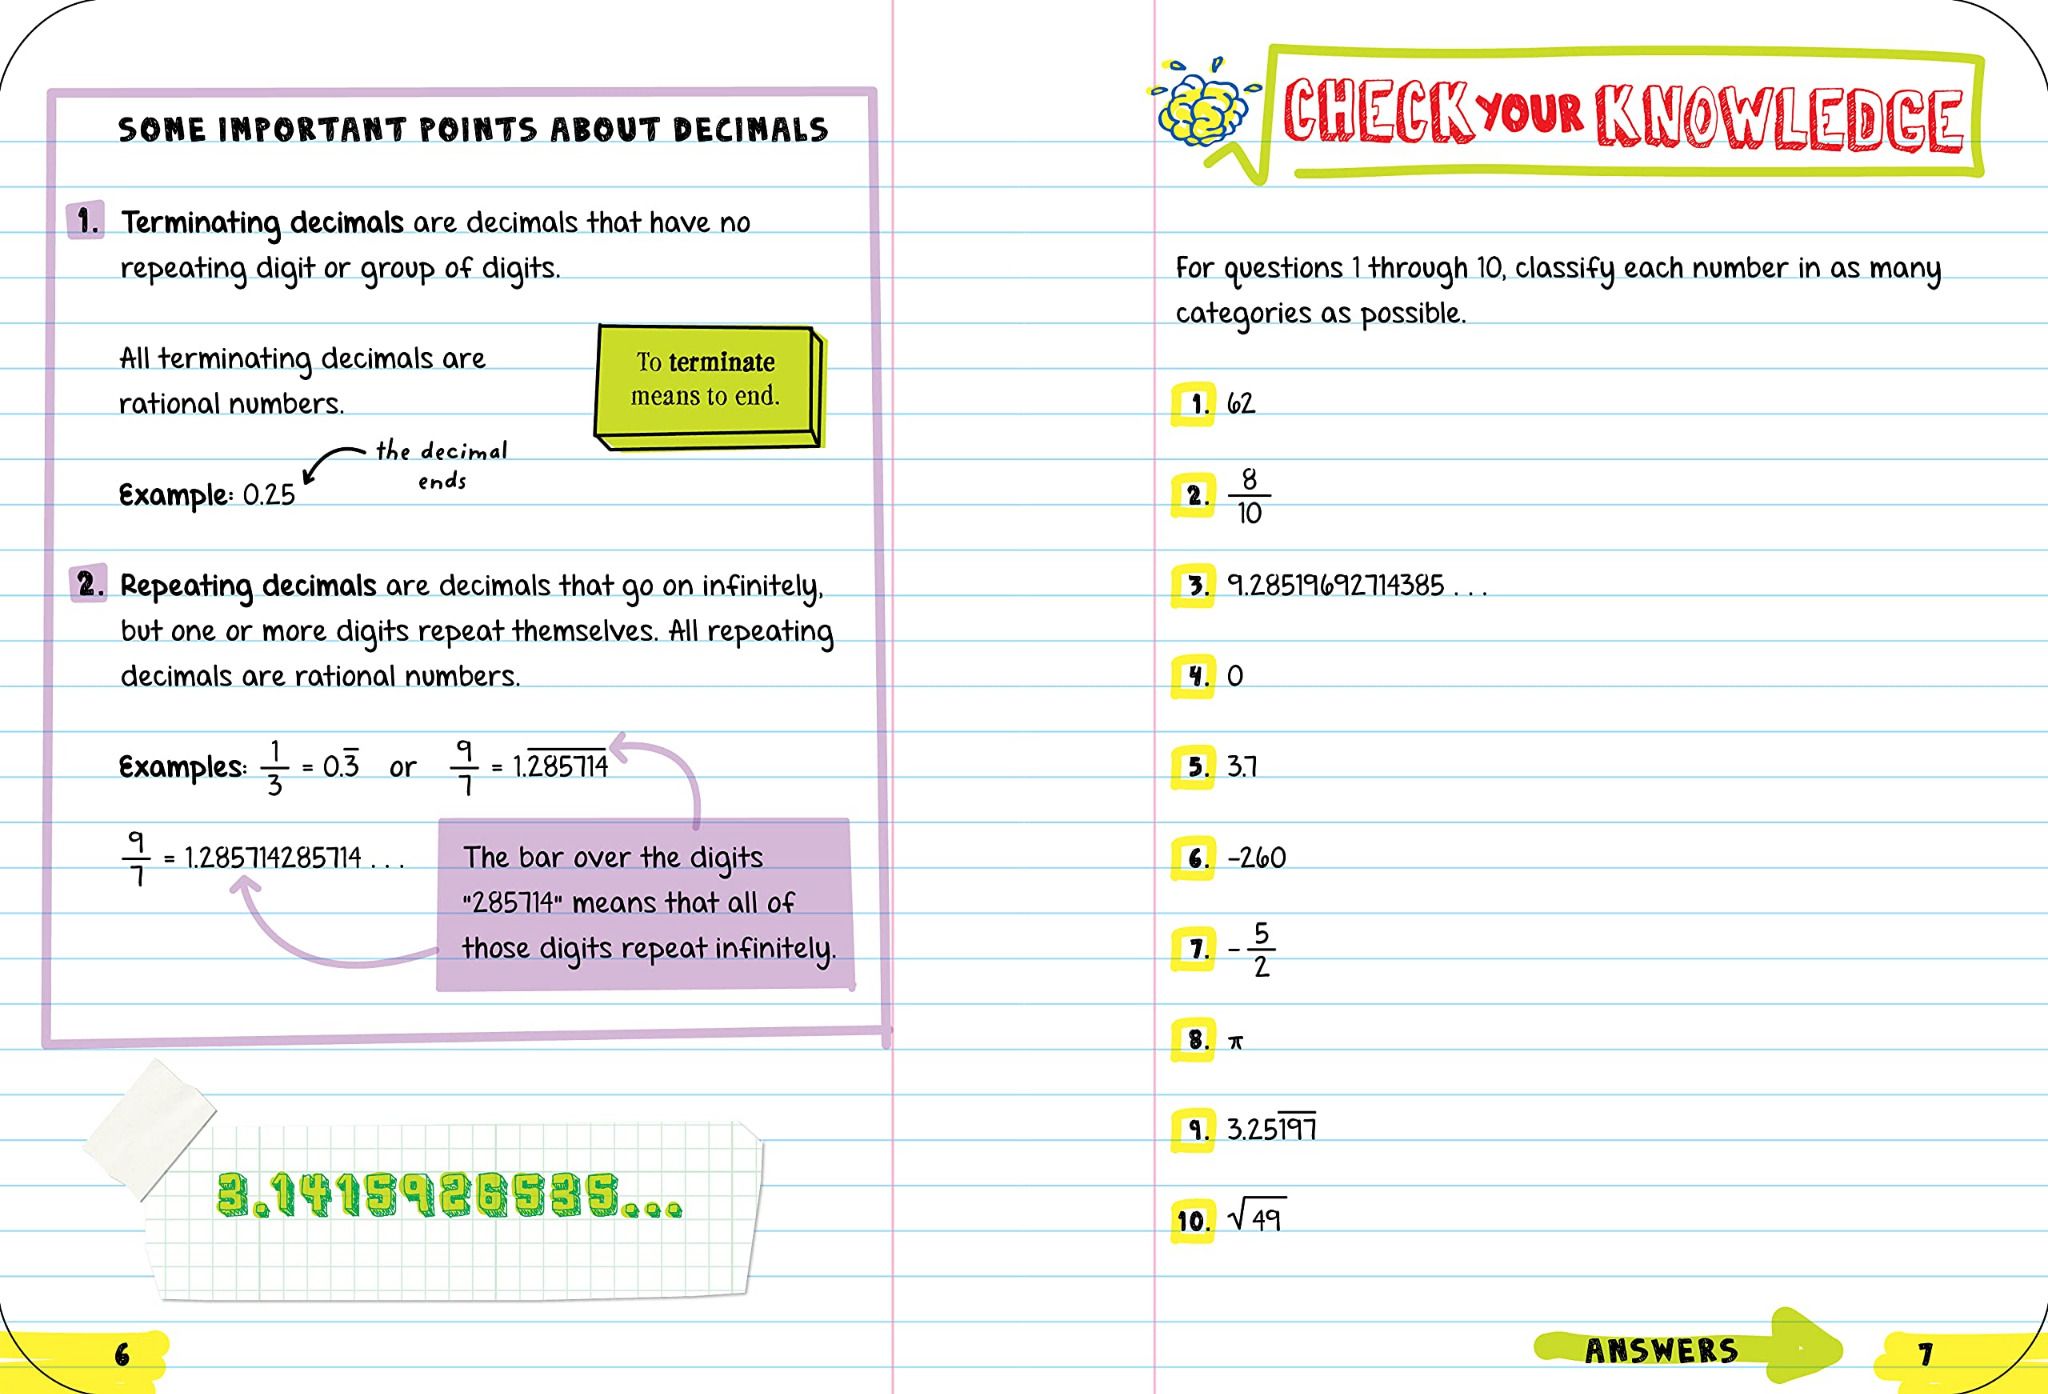 SOME IMPORTANT POINTS ABOUT DECIMALS
1. Terminating decimals are decimals that have no
repeating digit or group of digits.
All terminating decimals are
rational numbers.
To terminate
means to end.
the decimal
ends
Example: 0.25
2. Repeating decimals are decimals that go on infinitely,
but one or more digits repeat themselves. All repeating
decimals are rational numbers.
Examples: 1/3 = 0.3̅ or 9/7 = 1.2̅8̅5̅7̅1̅4̅
9/7 = 1.285714285714 . . .
The bar over the digits
"285714" means that all of
those digits repeat infinitely.
3.1415926535...
6
CHECK YOUR KNOWLEDGE
For questions 1 through 10, classify each number in as many
categories as possible.
1. 62
2. 8/10
3. 9.28519692714385 . . .
4. 0
5. 3.7
6. -260
7. -5/2
8. π
9. 3.251̅9̅7̅
10. √49
ANSWERS
7